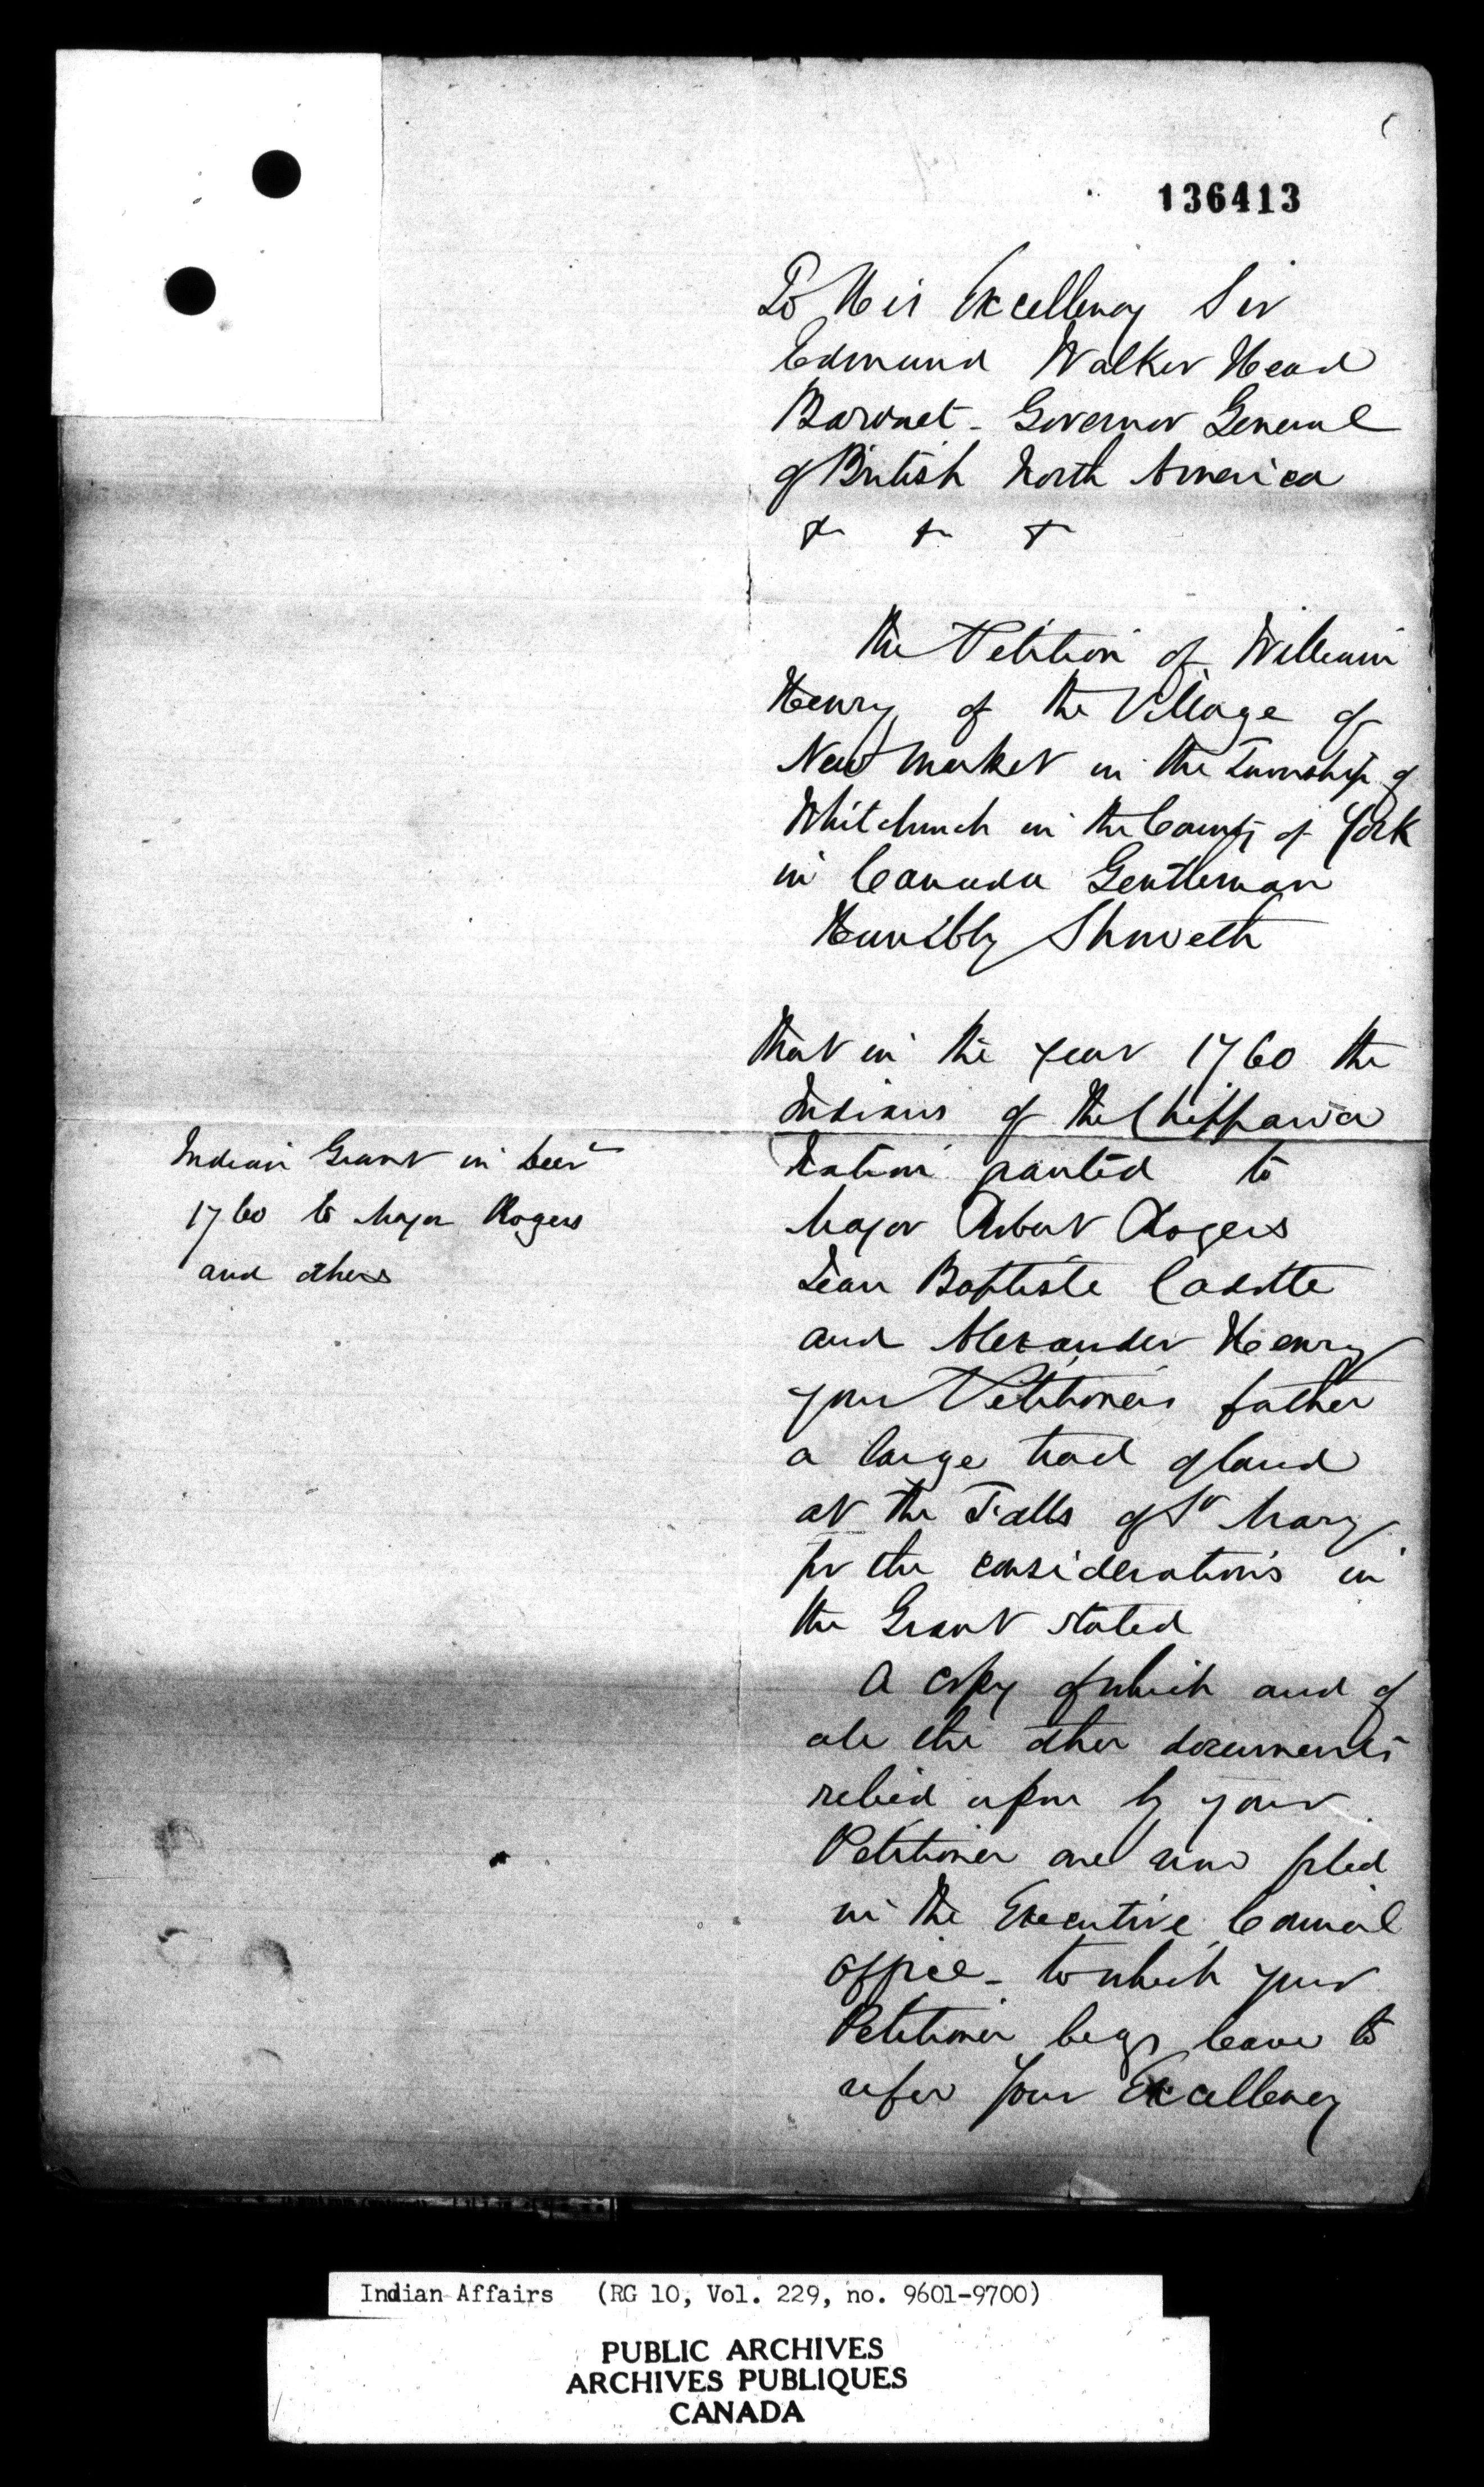 136413
To His Excellency Sir
Edmund Walker Head
Baronet - Governor General
of British North America
& & &
The Petition of William
Henry of the Village of
New Market in the Township of
Whitchurch in the County of York
in Canada Gentleman
Humbly Sheweth
That in the year 1760 the
Indians of the Chippawa
Nation granted to
Major Robert Rogers
Jean Baptiste Cadotte
and Alexander Henry
your Petitioners father
a large tract of land
at the Falls of St Mary
for the considerations in
the Grant stated
A copy of which and of
all the other documents
relied upon by your
Petitioner are now filed
in the Executive Council
office - to which your
Petitioner begs leave to
refer Your Excellency
Indian Grant in
1760 to Major Rogers
and others
Indian Affairs (RG 10, Vol. 229, no. 9601-9700)
PUBLIC ARCHIVES
ARCHIVES PUBLIQUES
CANADA